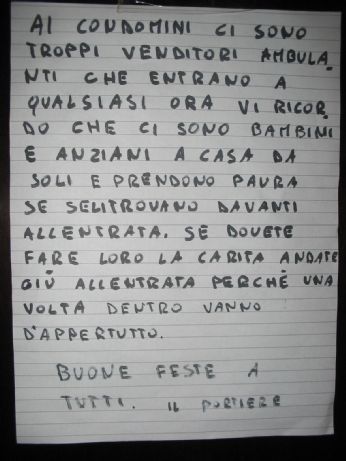 AI CONDOMINI CI SONO
TROPPI VENDITORI AMBULA
NTI CHE ENTRANO A
QUALSIASI ORA VI RICOR
DO CHE CI SONO BAMBINI
E ANZIANI A CASA DA
SOLI E PRENDONO PAURA
SE SELITROVANO DAVANTI
ALLENTRATA. SE DOVETE
FARE LORO LA CARITA ANDATE
GIÙ ALLENTRATA PERCHÈ UNA
VOLTA DENTRO VANNO
D'APPERTUTTO.
BUONE FESTE A
TUTTI. IL PORTIERE